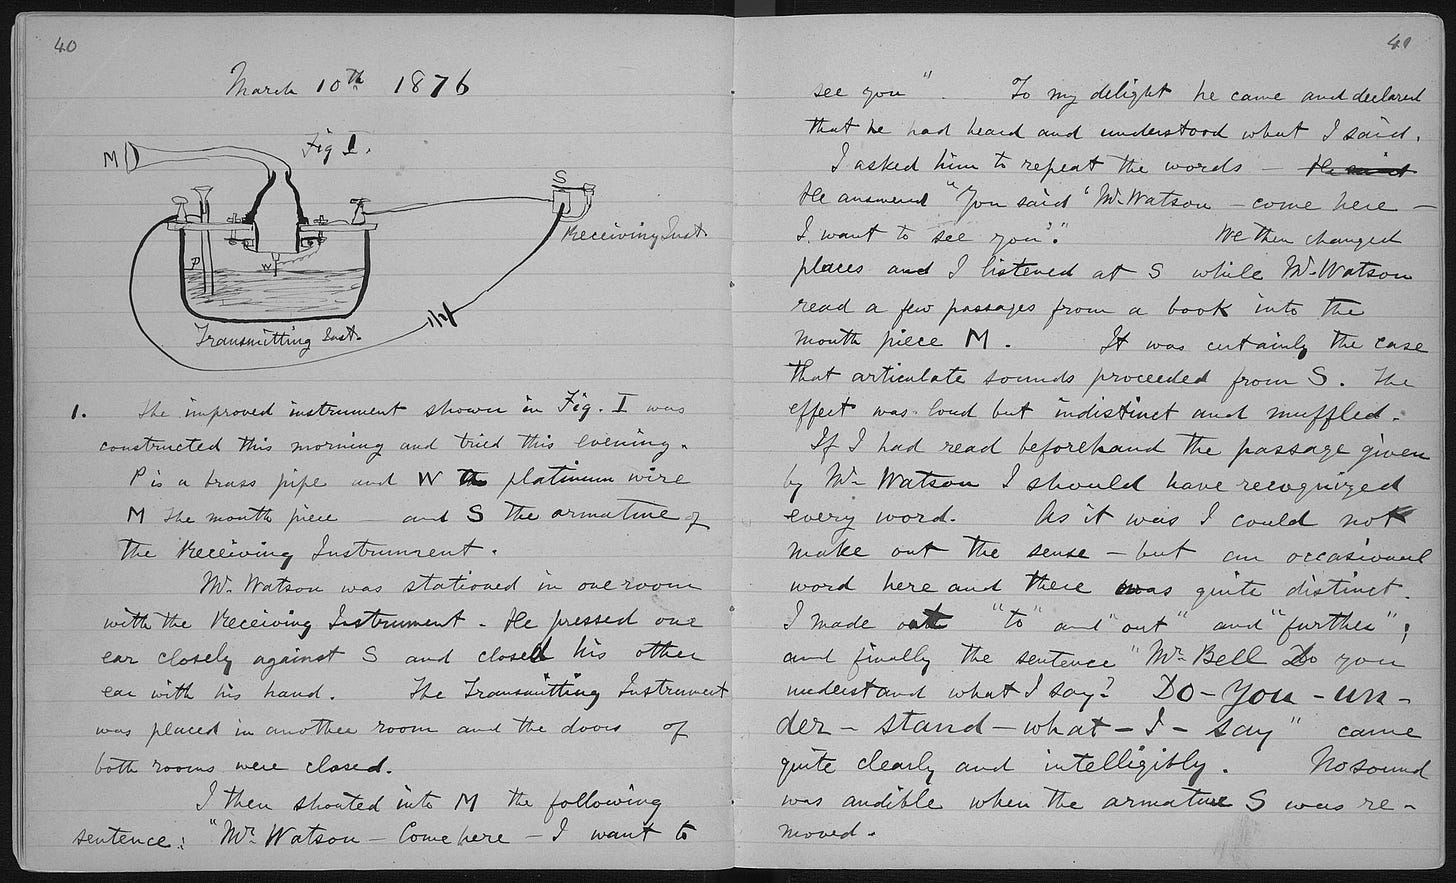 40
March 10th 1876
Fig 1.
M
S
Receiving Inst.
P
W
Transmitting Inst.
1. The improved instrument shown in Fig. I was
constructed this morning and tried this evening.
P is a brass pipe and W the platinum wire
M the mouth piece — and S the armature of
the Receiving Instrument.
Mr. Watson was stationed in one room
with the Receiving Instrument. He pressed one
ear closely against S and closed his other
ear with his hand. The Transmitting Instrument
was placed in another room and the doors of
both rooms were closed.
I then shouted into M the following
sentence: "Mr. Watson — Come here — I want to
41
see you". To my delight he came and declared
that he had heard and understood what I said.
I asked him to repeat the words —
He answered "You said 'Mr. Watson — come here —
I want to see you'." We then changed
places and I listened at S while Mr. Watson
read a few passages from a book into the
mouth piece M. It was certainly the case
that articulate sounds proceeded from S. The
effect was loud but indistinct and muffled.
If I had read beforehand the passage given
by Mr. Watson I should have recognized
every word. As it was I could not
make out the sense — but an occasional
word here and there was quite distinct.
I made out "to" and "out" and "further";
and finally the sentence "Mr. Bell Do you
understand what I say? Do - You - un -
der - stand - what - I - say" came
quite clearly and intelligibly. No sound
was audible when the armature S was re-
moved.